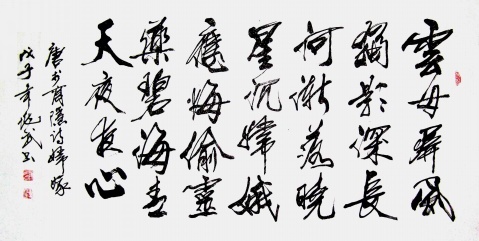 雲母屏風
燭影深長
河漸落曉
星沉嫦娥
應悔偷靈
藥碧海青
天夜夜心
唐李商隱詩嫦娥
戊子年